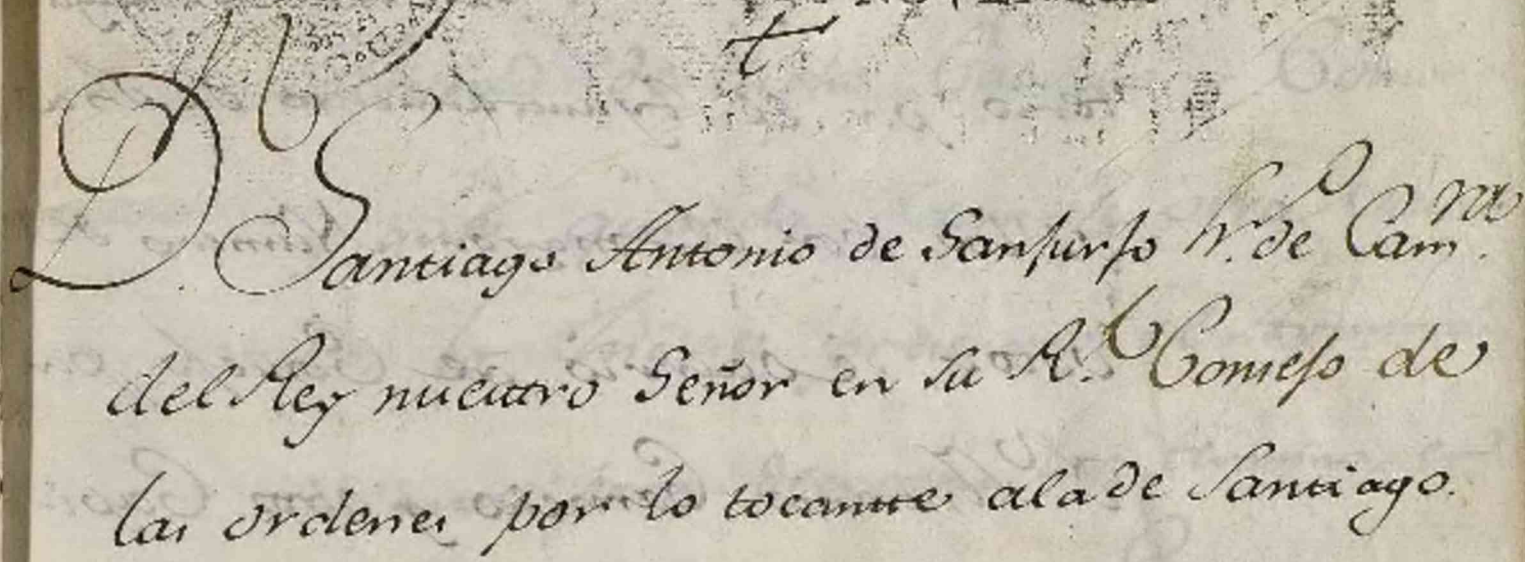 D. Santiago Antonio de Sansurso Sr.º de Cam.ra
del Rey nuestro Señor en su R.l Consejo de
las ordenes por lo tocante ala de Santiago.